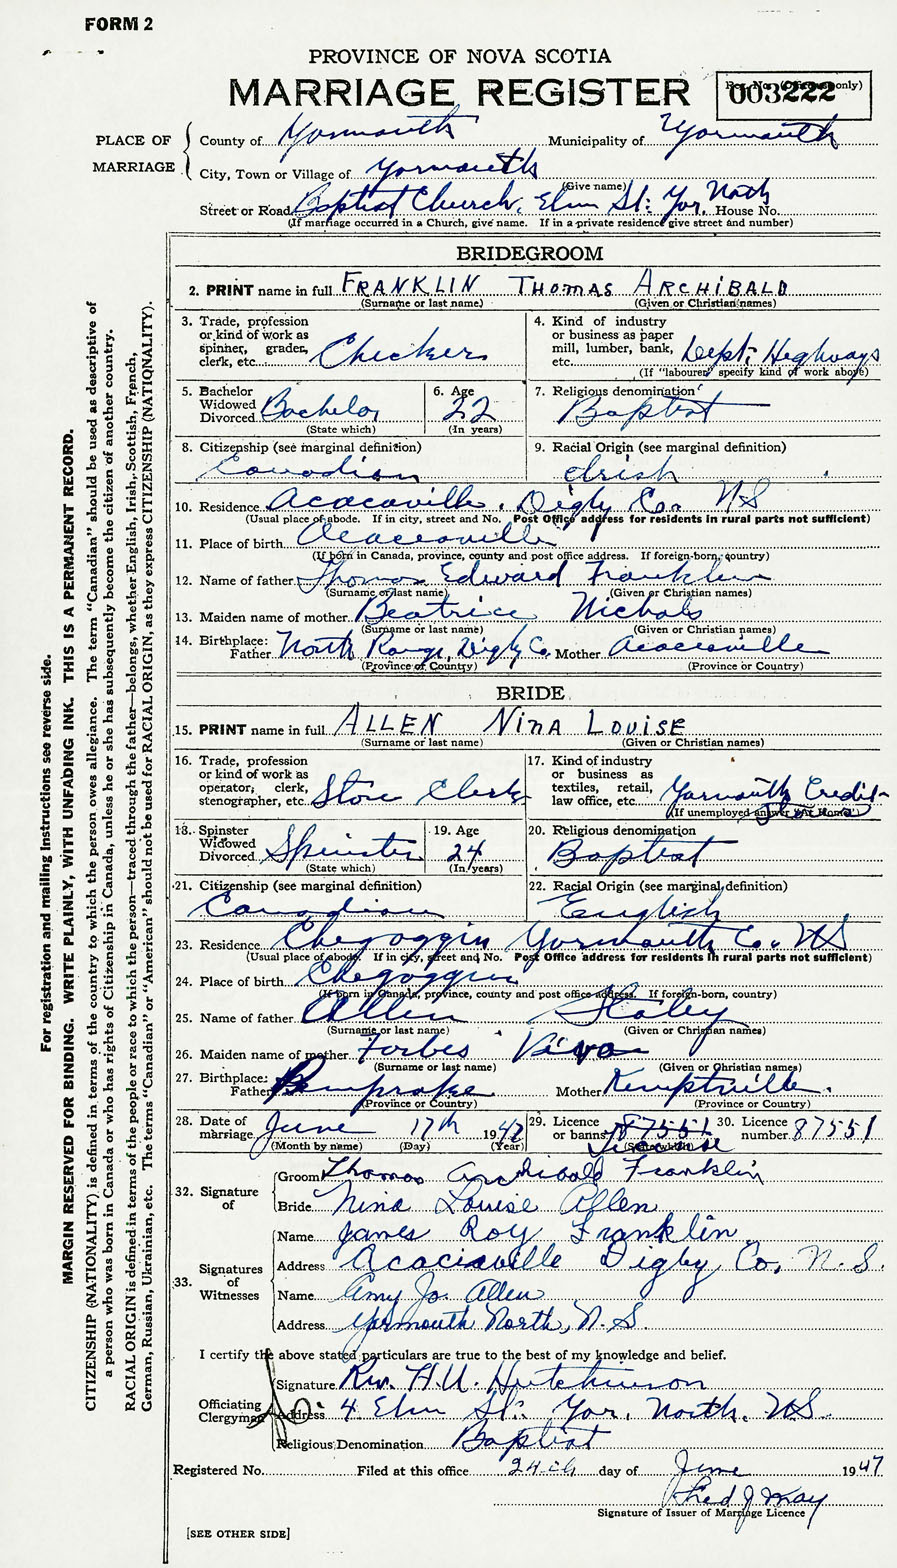 FORM 2
PROVINCE OF NOVA SCOTIA
MARRIAGE REGISTER
Reg. No. (Office use only)
003222
PLACE OF MARRIAGE
County of Yarmouth Municipality of Yarmouth
City, Town or Village of Yarmouth
(Give name)
Street or Road Baptist Church, Elm St: Yar. North House No.
(If marriage occurred in a Church, give name. If in a private residence give street and number)
BRIDEGROOM
2. PRINT name in full FRANKLIN THOMAS ARCHIBALD
(Surname or last name) (Given or Christian names)
3. Trade, profession or kind of work as spinner, grader, clerk, etc. Checker
4. Kind of industry or business as paper mill, lumber, bank, etc. Dept: Highways
(If "labourer" specify kind of work above)
5. Bachelor Widowed Divorced Bachelor
(State which)
6. Age 22
(In years)
7. Religious denomination Baptist
8. Citizenship (see marginal definition) Canadian
9. Racial Origin (see marginal definition) Irish
10. Residence Acaciaville, Digby Co. NS
(Usual place of abode. If in city, street and No. Post Office address for residents in rural parts not sufficient)
11. Place of birth Acaciaville
(If born in Canada, province, county and post office address. If foreign-born, country)
12. Name of father Thomas Edward Franklin
(Surname or last name) (Given or Christian names)
13. Maiden name of mother Beatrice Nichols
(Surname or last name) (Given or Christian names)
14. Birthplace: Father North Range, Digby Co. Mother Acaciaville
(Province or Country) (Province or Country)
BRIDE
15. PRINT name in full ALLEN NINA LOUISE
(Surname or last name) (Given or Christian names)
16. Trade, profession or kind of work as operator, clerk, stenographer, etc. Store Clerk
17. Kind of industry or business as textiles, retail, law office, etc. Yarmouth Credit
(If unemployed answer "At Home")
18. Spinster Widowed Divorced Spinster
(State which)
19. Age 24
(In years)
20. Religious denomination Baptist
21. Citizenship (see marginal definition) Canadian
22. Racial Origin (see marginal definition) English
23. Residence Chegoggin Yarmouth Co. NS
(Usual place of abode. If in city, street and No. Post Office address for residents in rural parts not sufficient)
24. Place of birth Chegoggin
(If born in Canada, province, county and post office address. If foreign-born, country)
25. Name of father Allen
(Surname or last name) (Given or Christian names)
26. Maiden name of mother Forbes
(Surname or last name) (Given or Christian names)
27. Birthplace: Father Mother Kemptville.
(Province or Country) (Province or Country)
28. Date of marriage June 17th 1947
(Month by name) (Day) (Year)
29. Licence or banns 87551 License
(State which)
30. Licence number 87551
32. Signature of
Groom Thomas Archibald Franklin
Bride Nina Louise Allen
33. Signatures of Witnesses
Name James Roy Franklin
Address Acaciaville Digby Co. N.S.
Name Amy Jo. Allen
Address Yarmouth North, N.S.
I certify the above stated particulars are true to the best of my knowledge and belief.
Officiating Clergyman
Signature Rev. H.U. Hutchinson
Address 4 Elm St: Yar. North. NS.
Religious Denomination Baptist
Registered No. Filed at this office 24th day of June 1947
Signature of Issuer of Marriage Licence
[SEE OTHER SIDE]
For registration and mailing instructions see reverse side.
MARGIN RESERVED FOR BINDING. WRITE PLAINLY, WITH UNFADING INK. THIS IS A PERMANENT RECORD.
CITIZENSHIP (NATIONALITY) is defined in terms of the country to which the person owes allegiance. The term "Canadian" should be used as descriptive of
a person who was born in Canada or who has rights of Citizenship in Canada, unless he or she has subsequently become the citizen of another country.
RACIAL ORIGIN is defined in terms of the people or race to which the person—traced through the father—belongs, whether English, Irish, Scottish, French,
German, Russian, Ukrainian, etc. The terms "Canadian" or "American" should not be used for RACIAL ORIGIN, as they express CITIZENSHIP (NATIONALITY).